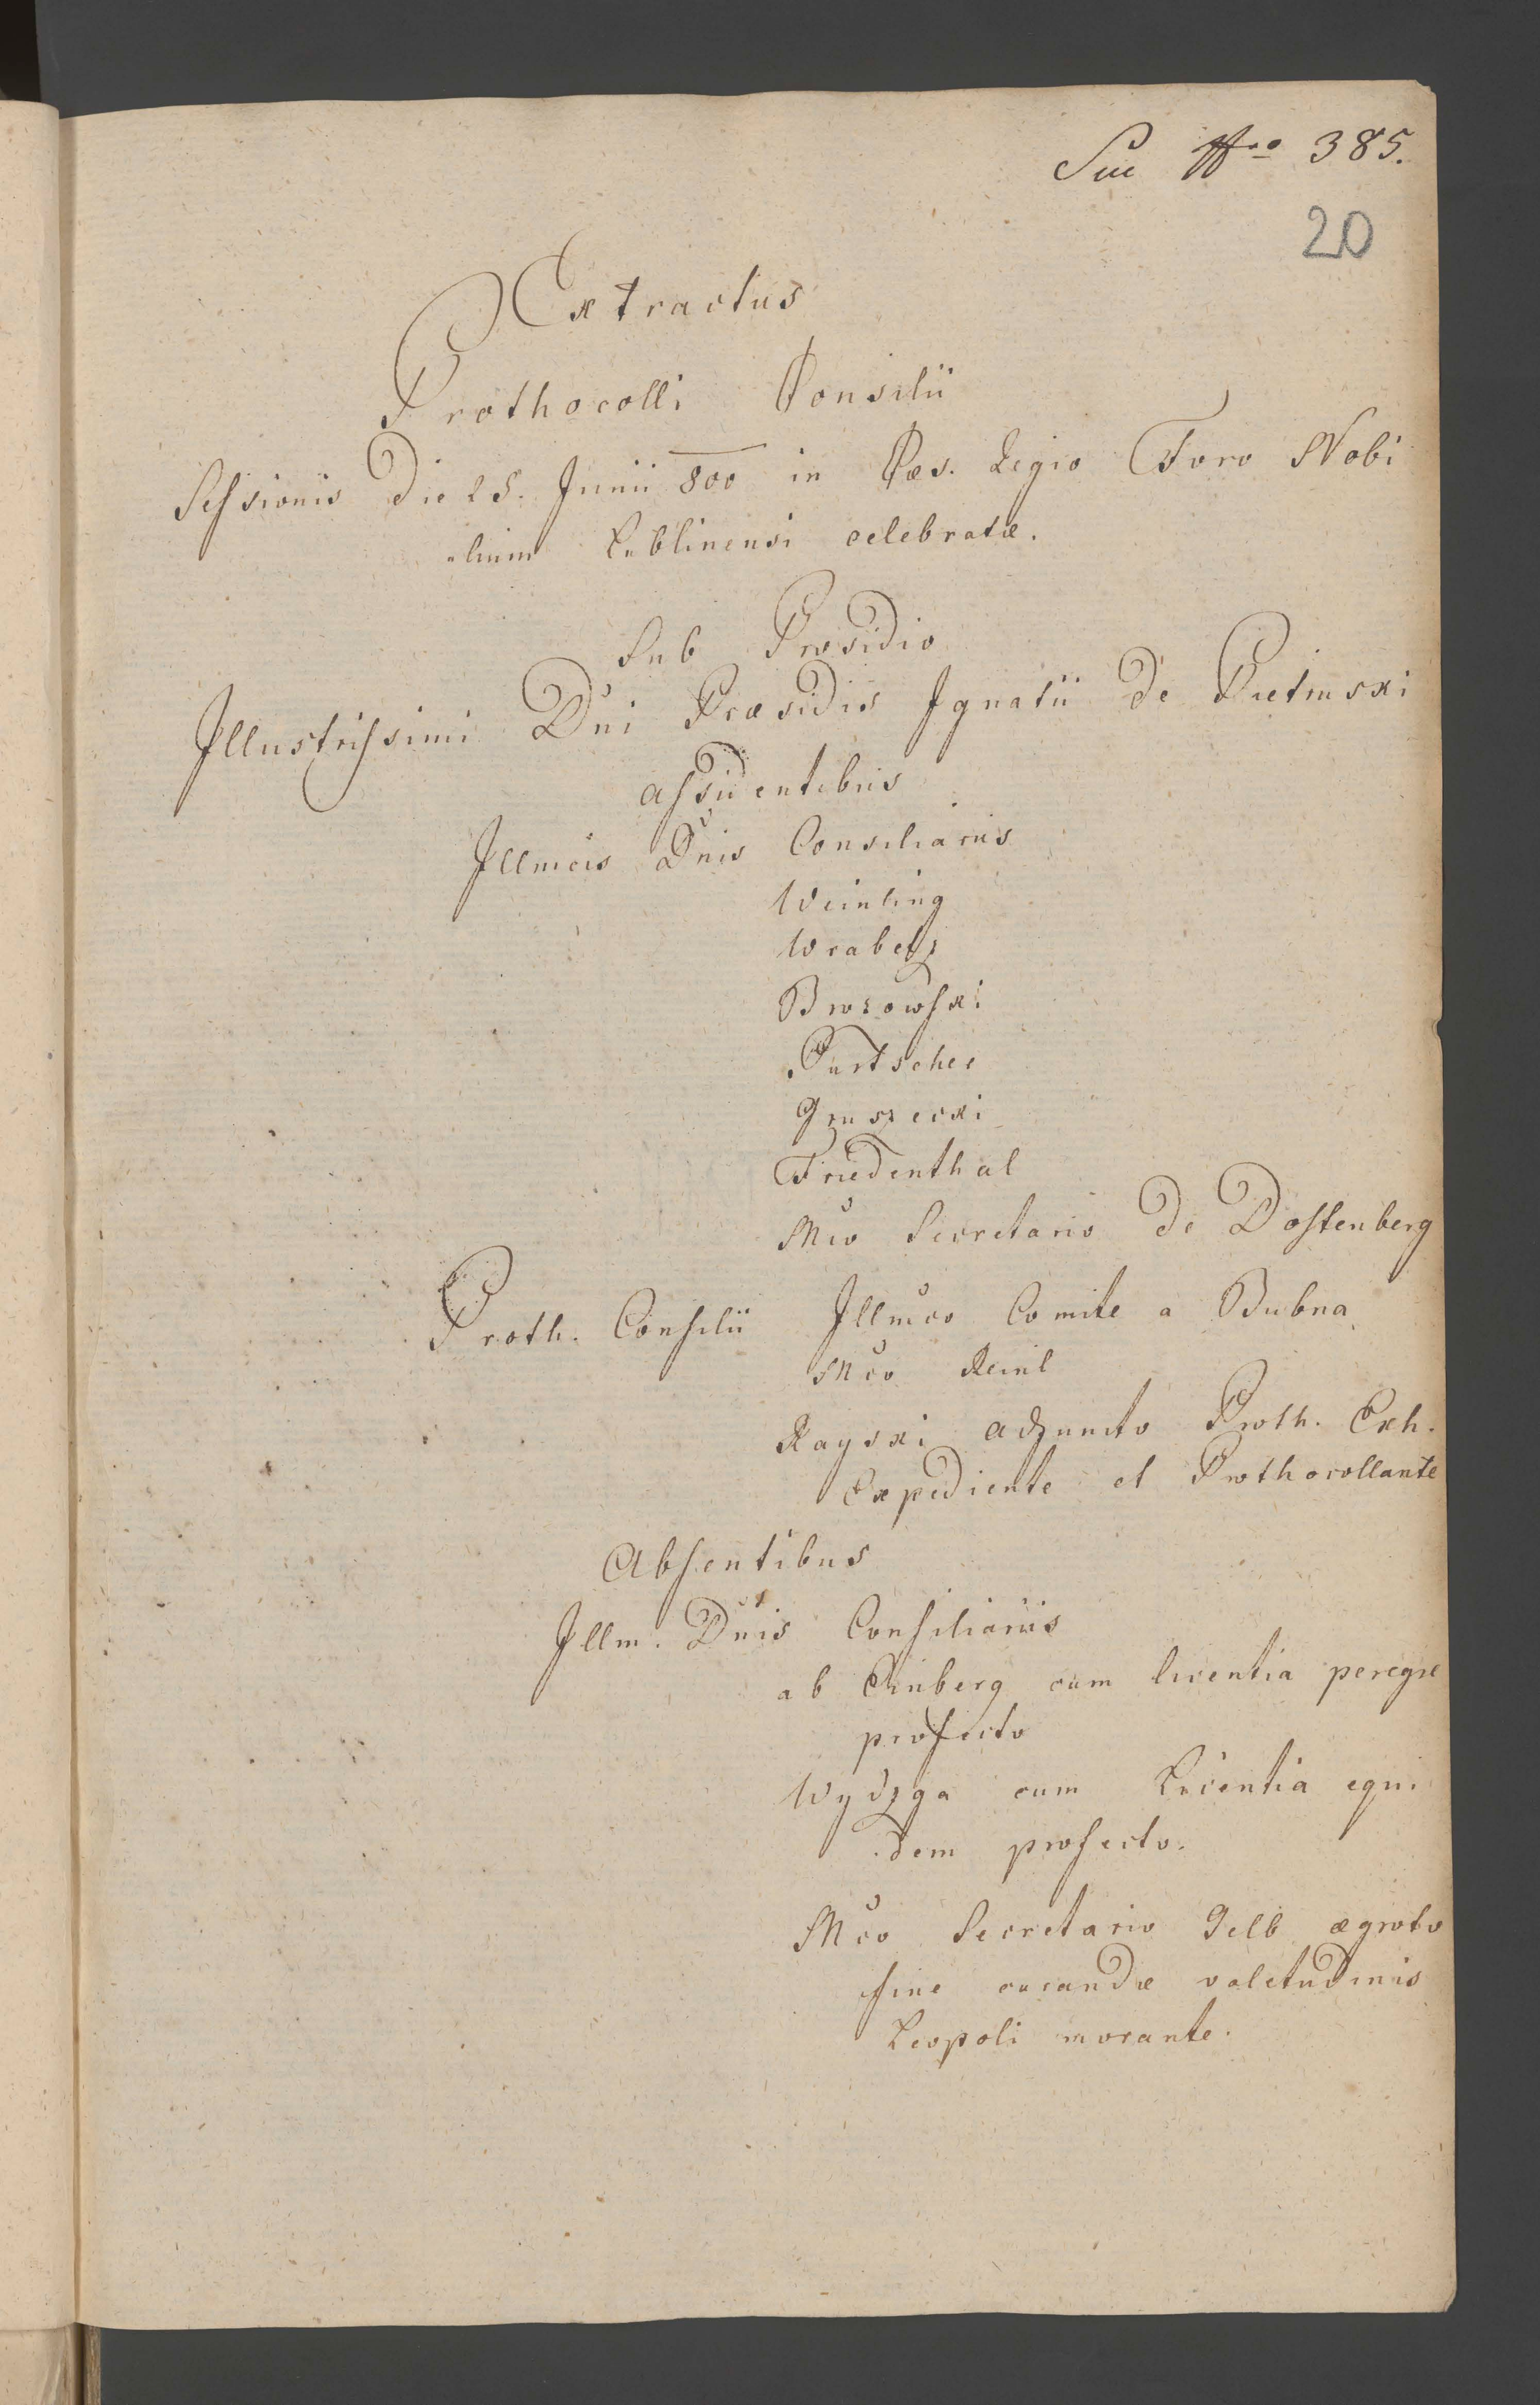 Nro 385.
20
Extractus
Prothocolli Consilii
Sessionis Die 25. Junii 800 in Caes. Regio Foro Nobi
lium Lublinensi celebratæ.
Sub Præsidio
Illustrissimi Dni Præsidis Ignatii De Pietruski
assidentibus
Illmcis Dnis Consiliariis
Weinling
Wrabetz
Brozowski
Purtscher
Gruszecki
Friedenthal
Mco Secretario De Dostenberg
Proth. Consilii Illmco Comite a Bubna
Mco Reinl
Rayski adjuncto Proth. Exh.
Expediente et Prothocollante
Absentibus
Illm. Dnis Consiliariis
ab Einberg cum licentia peregre
profecto
Wydzga cum Licentia equi
dem profecto.
Mco Secretario Gelb ægroto
fine curandæ valetudinis
Leopoli morante.